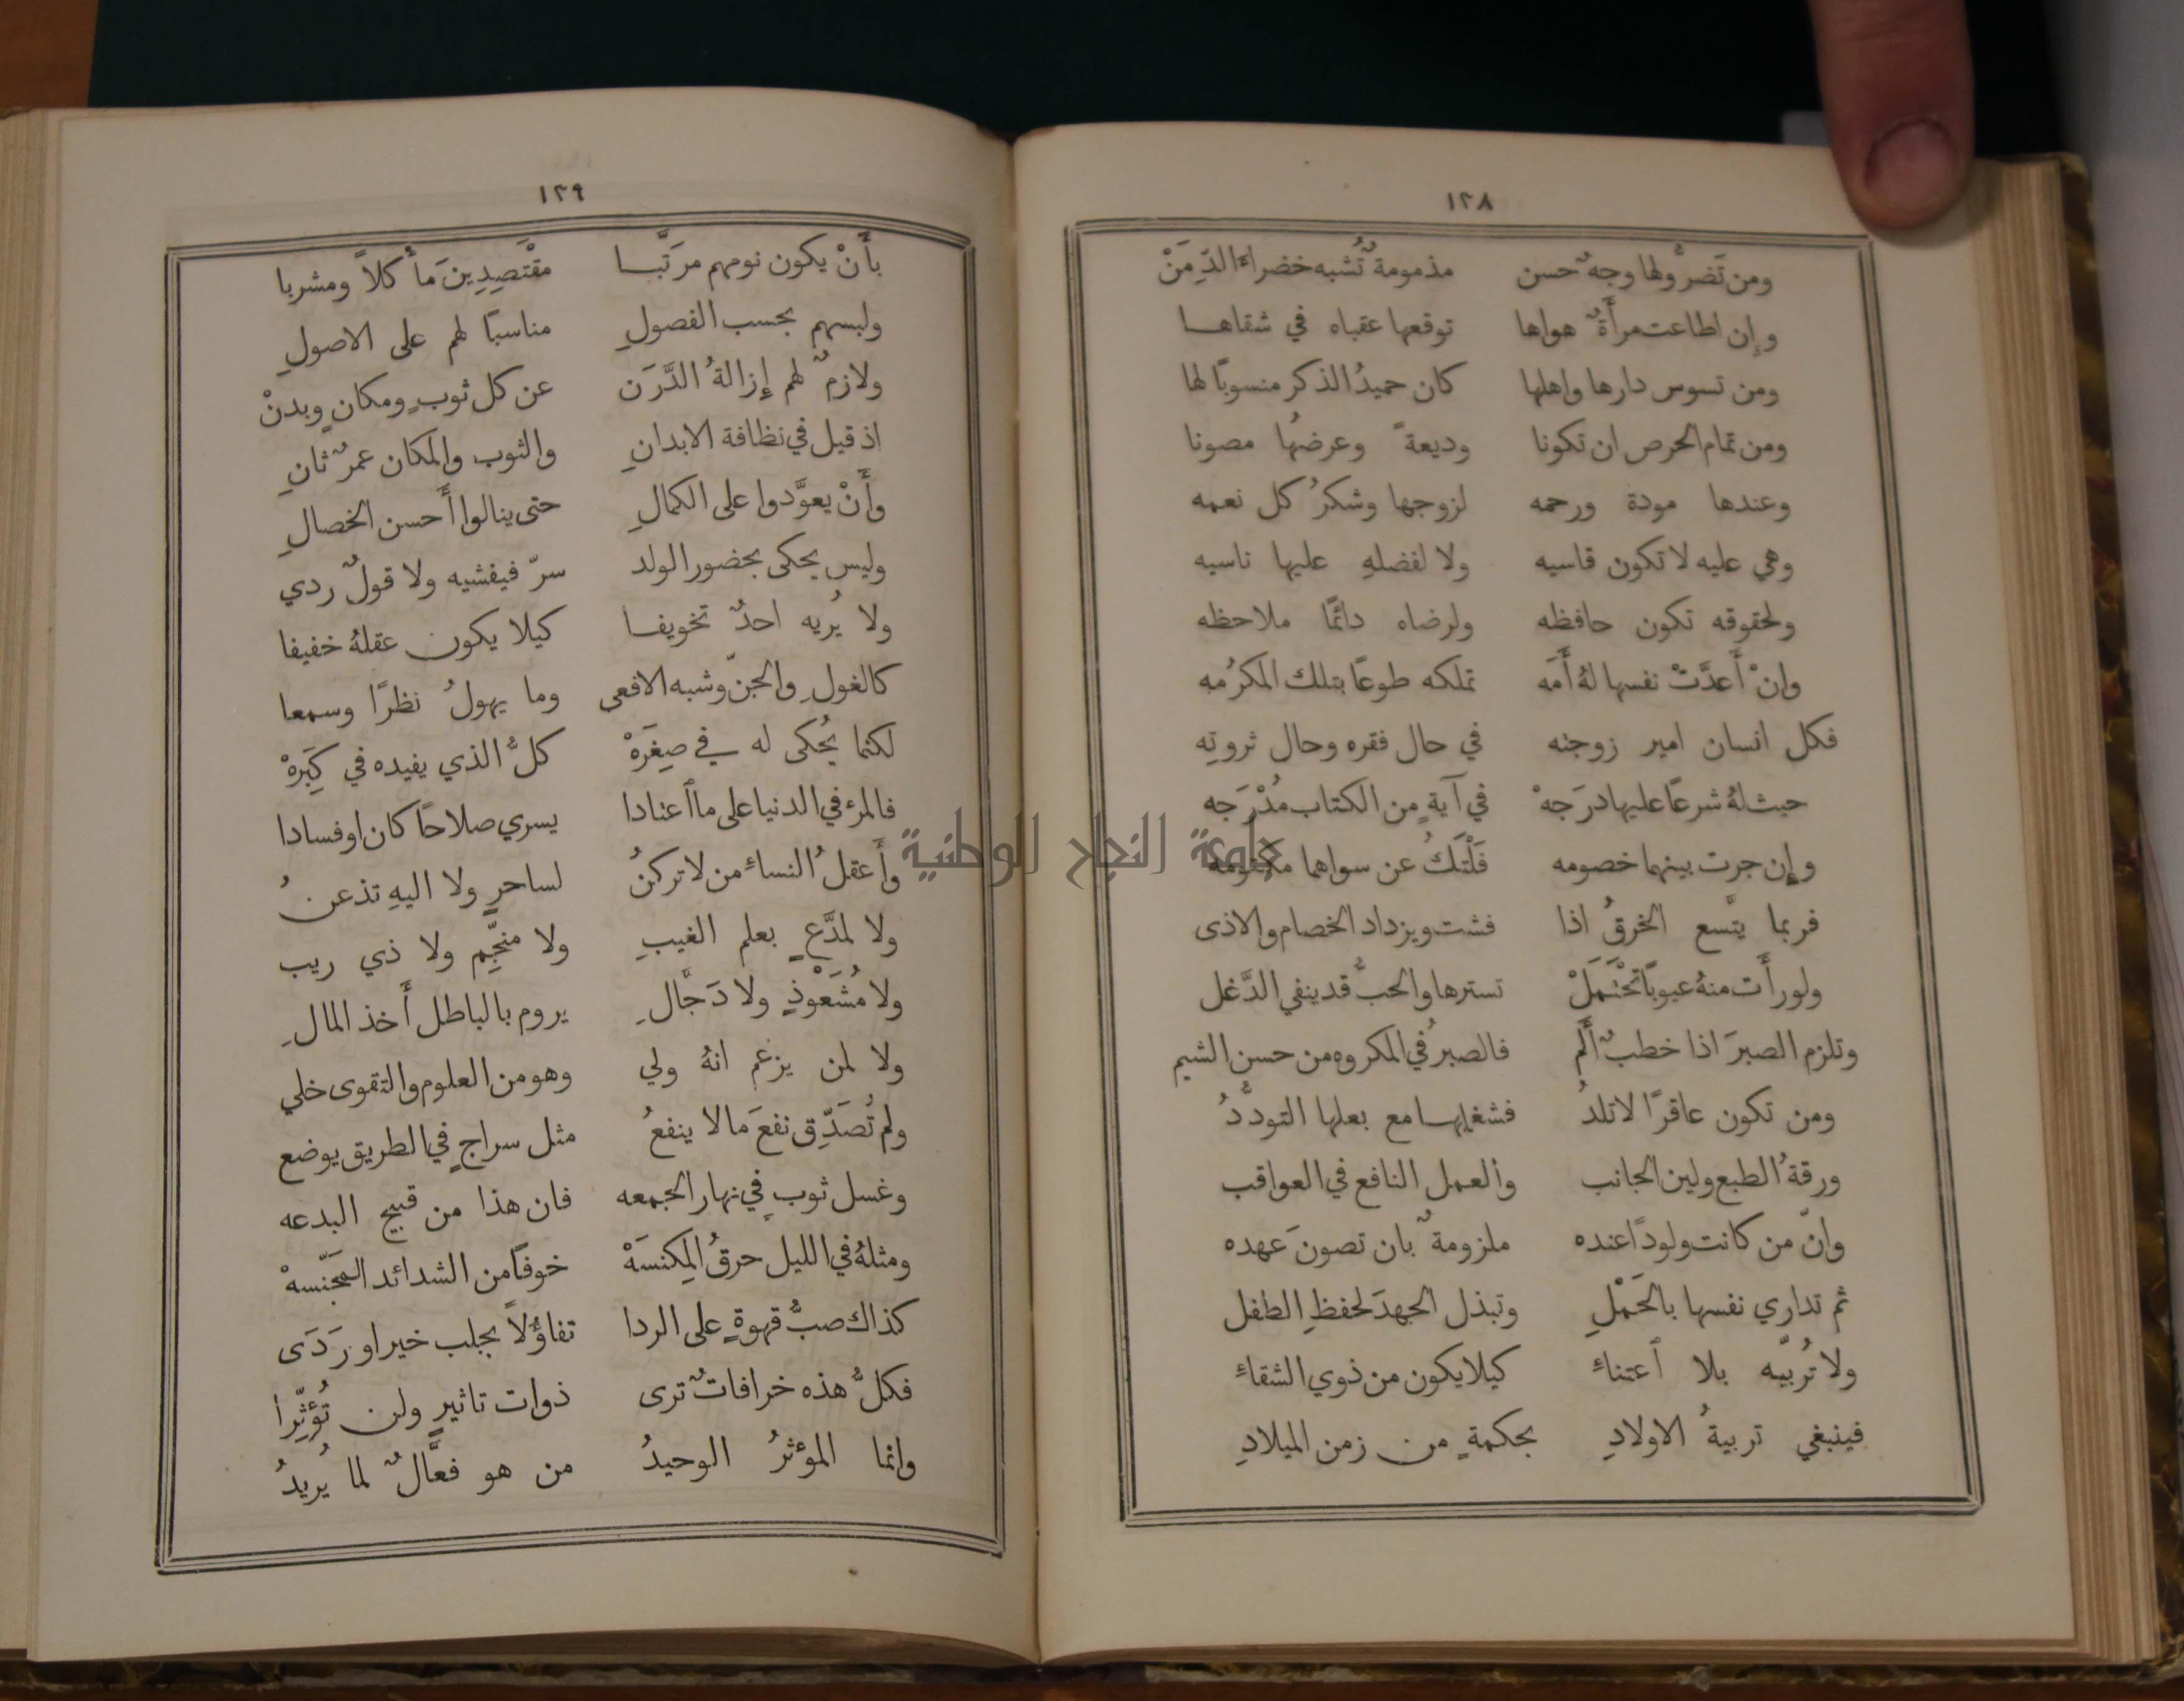 ١٢٨
ومن تَضرُّ ولها وجهٌ حسن مذمومةٌ تُشبه خضراءَ الدِّمَنْ
وإن اطاعت مرأَةٌ هواها توقعها عقباه في شقاها
ومن تسوس دارها واهلها كان حميدُ الذكر منسوبًا لها
ومن تمام الحرص ان تكونا وديعةً وعرضُها مصونا
وعندها مودة ورحمه لزوجها وشكرُ كل نعمه
وهي عليه لا تكون قاسيه ولا لفضلهِ عليها ناسيه
ولحقوقه تكون حافظه ولرضاه دائمًا ملاحظه
وانْ أَعدَّتْ نفسها لهُ أَمَه تملكه طوعًا بتلك المكرُمه
فكل انسان امير زوجته في حال فقره وحال ثروتِه
حيث لهُ شرعًا عليها درَجهْ في آيةٍ من الكتاب مُدْرَجه
وإن جرت بينهما خصومه فَلْتَكُ عن سواهما مكتومه
فربما يتَّسع الخرقُ اذا فشت ويزداد الخصام والاذى
ولو رأَت منهُ عيوبًا تُحْتَمَلْ تسترها والحبُّ قد ينفي الدَّغل
وتلزم الصبرَ اذا خطبٌ أَلم فالصبرُ في المكروه من حسن الشيم
ومن تكون عاقرًا لا تلدُ فشغلها مع بعلها التودُّدُ
ورقةُ الطبع ولين الجانب والعمل النافع في العواقب
وانّ من كانت ولودًا عنده ملزومةٌ بان تصونَ عهده
ثم تداري نفسها بالحَمْلِ وتبذل الجهدَ لحفظِ الطفل
ولا تُربيّه بلا ٱعتناءِ كيلا يكون من ذوي الشقاءِ
فينبغي تربيةُ الاولادِ بحكمةٍ من زمن الميلادِ
١٢٩
بأَنْ يكون نومهم مرَتَّبا مقْتَصِدِينَ مأْكلاً ومشربا
ولبسهم بحسب الفصولِ مناسبًا لهم على الاصولِ
ولازمٌ لهم إِزالةُ الدَّرَن عن كل ثوبٍ ومكانٍ وبدنْ
اذ قيل في نظافة الابدانِ والثوب والمكان عمرٌ ثانِ
وأَنْ يعوَّدوا على الكمالِ حتى ينالوا أَحسن الخصالِ
وليس يحكى بحضور الولد سرّ فيفشيه ولا قولٌ ردي
ولا يُريه احدٌ تخويفا كيلا يكون عقلهُ خفيفا
كالغولِ والجنّ وشبه الافعى وما يهولُ نظرًا وسمعا
لكنما يُحكى له في صِغَرَهْ كلُّ الذي يفيده في كِبَرهْ
فالمرء في الدنيا على ما ٱعتادا يسري صلاحًا كان او فسادا
وأَعقلُ النساءِ من لا تركنُ لساحرٍ ولا اليهِ تذعنُ
ولا لمدَّعٍ بعلم الغيبِ ولا منجِّم ولا ذي ريب
ولا مُشَعْوِذٍ ولا دَجَّالِ يروم بالباطل أَخذ المالِ
ولا لمن يزعم انهُ ولي وهو من العلوم والتقوى خلي
ولم تُصَدِّق نفعَ مالا ينفعُ مثل سراجٍ في الطريق يوضع
وغسل ثوبٍ في نهار الجمعه فان هذا من قبيح البدعه
ومثلهُ في الليل حرقُ المِكنسَهْ خوفًا من الشدائد المجَنّسهْ
كذاك صبُّ قهوةٍ على الردا تفاؤُلاً بجلب خير او رَدَى
فكلُّ هذه خرافاتٌ ترى ذوات تاثيرٍ ولن تُؤَثِّرا
وانما المؤثرُ الوحيدُ من هو فعَّالٌ لما يُريدُ
جامعة النجاح الوطنية